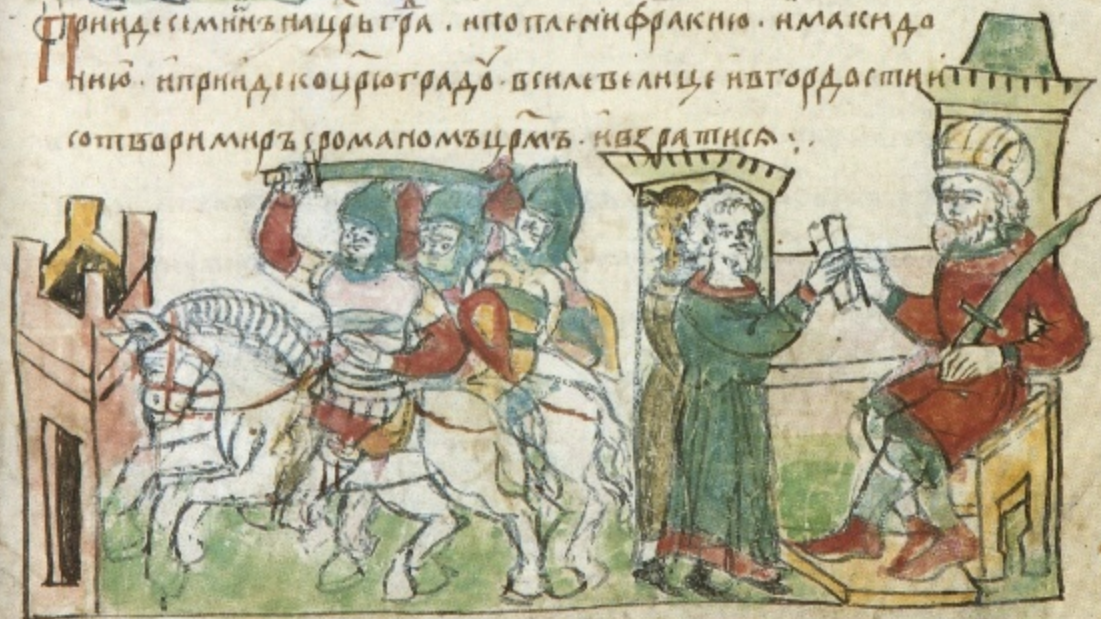 Прииде семиѡнъ на црьгра · и поплени фракию · и макидо
нию · и прииде ко црюградѹ · в силе велице и в гордости и
сотвори миръ с романомъ црмъ · и взратися :·